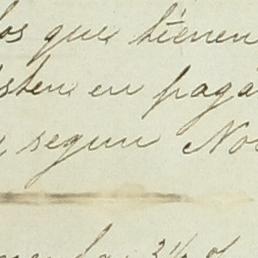 los que tienen
isten en paga
segun No
3½ %